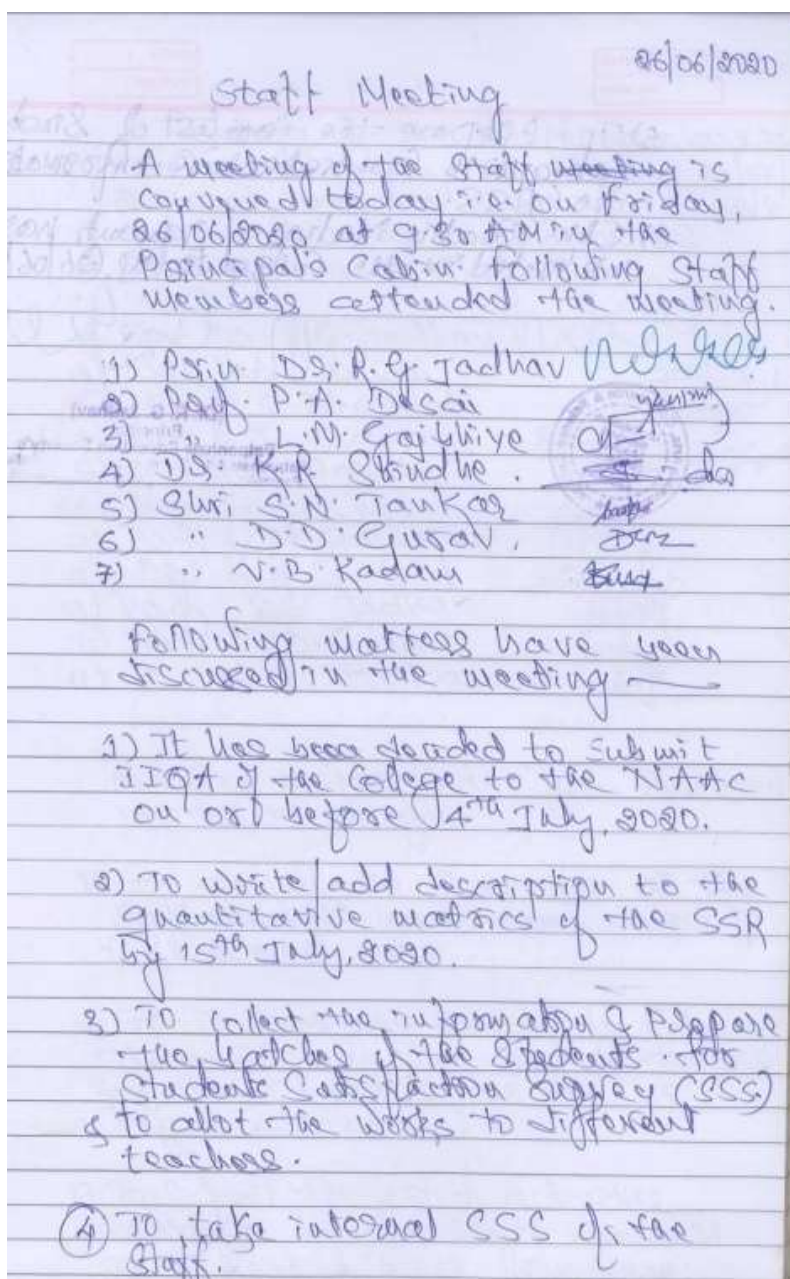 26/06/2020
Staff Meeting
A meeting of the Staff meeting is
convened today i.e. on Friday,
26/06/2020 at 9.30 AM in the
Principal's Cabin. Following Staff
Members attended the meeting.
1) Prin. Dr. R. G. Jadhav
2) Prof. P.A. Desai
3) " L.M. Gajbhiye
4) Dr. K.R. Shindhe.
5) Shri S.N. Tankar
6) " D.D. Gurav.
7) " V.B. Kadam
Following matters have been
discussed in the meeting
1) It has been decided to submit
IIQA of the College to the NAAC
on or before 4th July, 2020.
2) To write/add description to the
quantitative metrics of the SSR
by 15th July, 2020.
3) To collect the information & prepare
the batches of the Students for
Students Satisfaction Survey (SSS)
& to allot the works to different
teachers.
4) To take internal SSS of the
Staff.